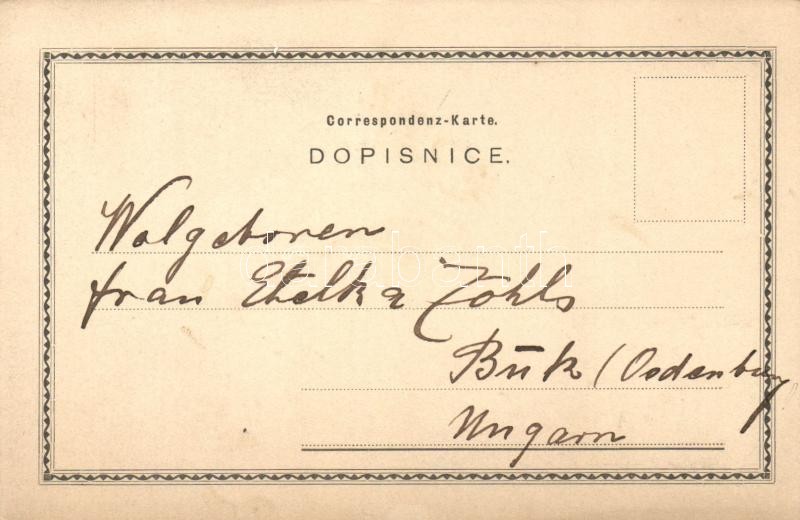 Correspondenz-Karte.
DOPISNICE.
Wolgeboren
frau Etelka Zohls
Bük / Oedenburg
Ungarn